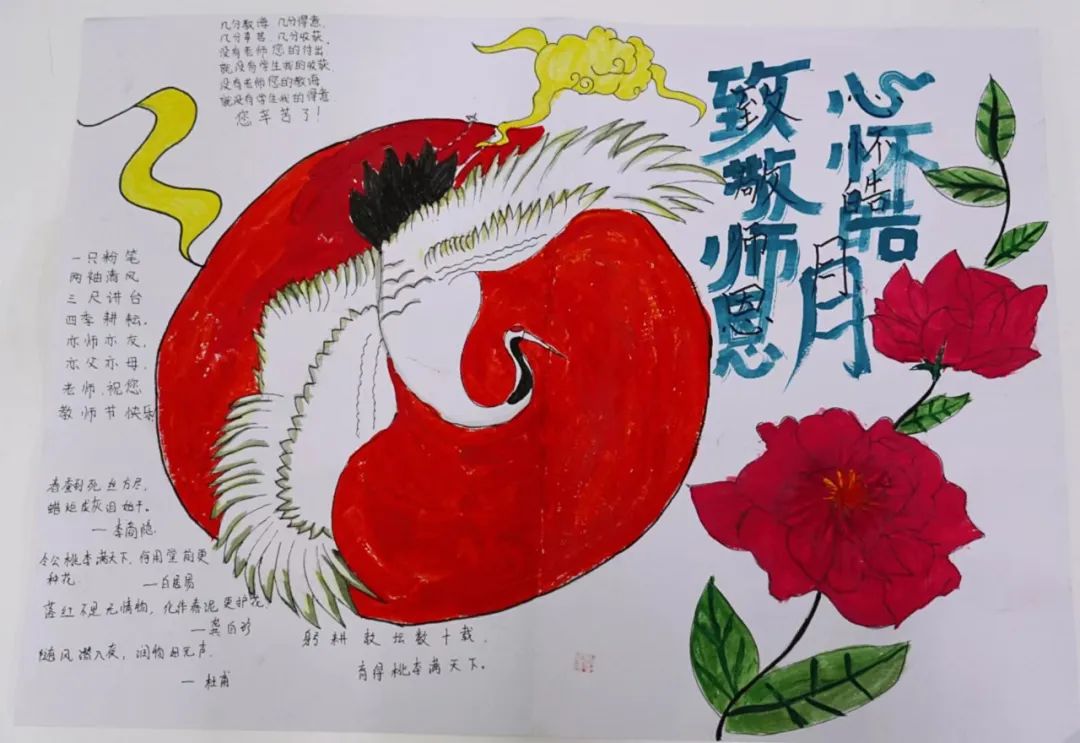 几分教诲,几分得意,
几分辛苦,几分收获,
没有老师您的付出
就没有学生我的收获
没有老师您的教诲
就没有学生我的得意.
您辛苦了!
心怀皓月
致敬师恩
一只粉笔
两袖清风
三尺讲台
四季耕耘.
亦师亦友,
亦父亦母.
老师,祝您
教师节快乐
春蚕到死丝方尽,
蜡炬成灰泪始干。
—李商隐
令公桃李满天下,何用堂前更
种花.
—白居易
落红不是无情物,化作春泥更护花.
—龚自珍
随风潜入夜,润物细无声.
—杜甫
躬耕教坛数十载.
育得桃李满天下。